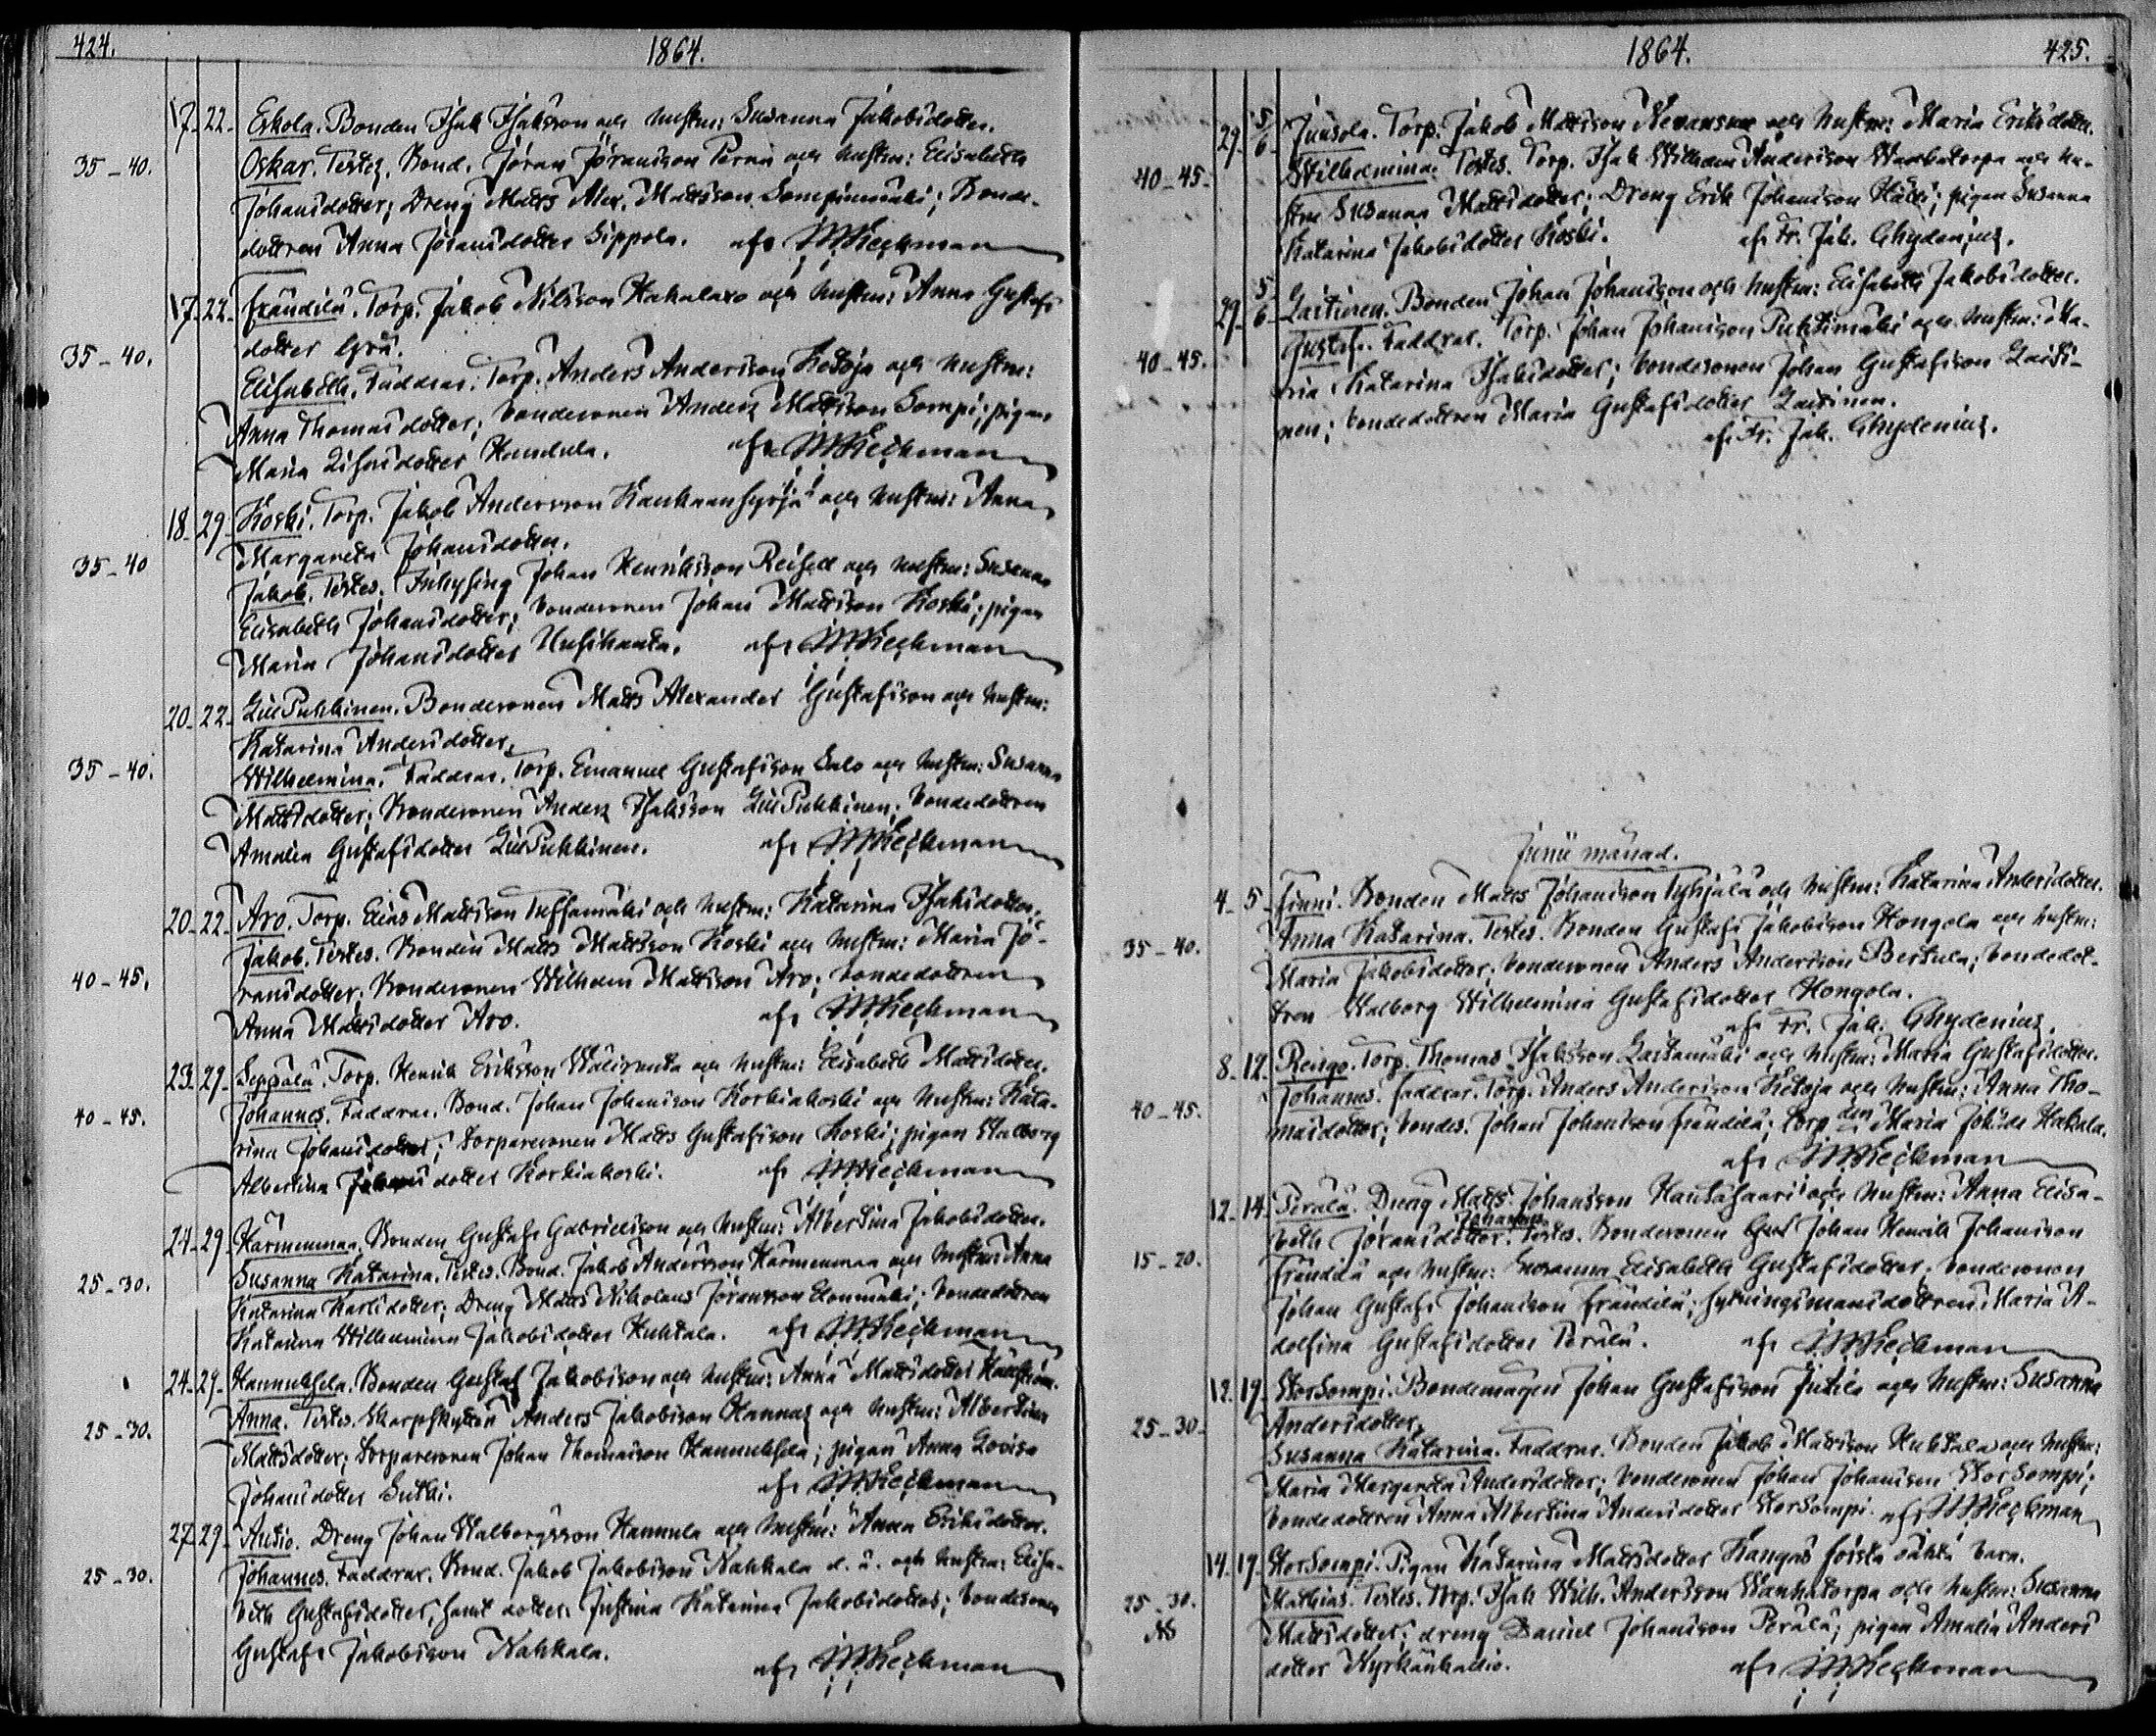 424.
1864.
17. 22. Eskola. Bonden Isak Isaksson och hustru: Susanna Jakobsdotter.
35-40. Oskar. Testes. Bond. Jöran Jöransson Pernu och hustru: Elisabeth
Johansdotter; Dreng Matts Alex. Mattsson Sompinmäki; Bonde-
dottren Anna Jöransdotter Sippola. af WHeckman
17. 22. Frändilä. Torp. Jakob Nilsson Hakalaxo och hustru: Anna Gustafs
dotter Grå.
35-40. Elisabeth. Faddrar: Torp. Anders Andersson Ketoja och hustru:
Anna Thomasdotter; bondesonen Anders Mattsson Sompi; pigan
Maria Lisasdotter Handula. af WHeckman
18. 29. Koski. Torp. Jakob Andersson Kauhaanhyrjä och hustru: Anna
Margareta Johansdotter.
35-40 Jakob. Testes. Inhysing Johan Henriksson Reisell och hustru: Susanna
Elisabeth Johansdotter; bondesonen Johan Mattsson Koski; pigan
Maria Johansdotter Uusihanta. af WHeckman
20. 22. LillPukkinen. Bondesonen Matts Alexander Gustafsson och hustru:
Katarina Andersdotter.
35-40. Wilhelmina. Faddrar. Torp. Emanuel Gustafsson Salo och hustru: Susanna
Mattsdotter; Bondesonen Anders Isaksson LillPukkinen; bondedottren
Amalia Gustafsdotter LillPukkinen. af WHeckman
20. 22. Aro. Torp. Elias Mattsson Tuffamäki och hustru: Katarina Isaksdotter.
Jakob. Testes. Bonden Matts Mattsson Koski och hustru: Maria Jö-
40-45. ransdotter; Bondesonen Wilhelm Mattsson Aro; bondedottren
Anna Mattsdotter Aro. af WHeckman
23. 29. Seppälä. Torp. Henrik Eriksson Wälisunta och hustru: Elisabeth Mattsdotter.
40-45. Johannes. Faddrar. Bond. Johan Johansson Korkiakoski och hustru: Kata-
rina Johansdotter; torparesonen Matts Gustafsson Koski; pigan Walborg
Albertina Johansdotter Korkiakoski. af WHeckman
24. 29. Harmenmaa. Bonden Gustaf Gabrielsson och hustru: Albertina Jakobsdotter.
25-30. Susanna Katarina. Testes. Bond. Jakob Andersson Harmenmaa och hustru: Anna
Katarina Karlsdotter; Dreng Matts Nikolaus Jöransson Elonmäki; bondedottren
Katarina Wilhelmina Jakobsdotter Huhtala. af WHeckman
24. 29. Hannuksela. Bonden Gustaf Jakobsson och hustru: Anna Mattsdotter
25-30. Anna. Testes. Skarpskytten Anders Jakobsson Hannus och hustru: Albertina
Mattsdotter; torparesonen Johan Thomasson Hannuksela; pigan Anna Lovisa
Johansdotter Sutki. af WHeckman
27. 29. Autio. Dreng Johan Walborgsson Hannula och hustru: Anna Eriksdotter.
25-30. Johannes. Faddrar. Bond. Jakob Jakobsson Nahkala d. ä. och hustru: Elisa-
beth Gustafsdotter, samt dotter: Justina Katarina Jakobsdotter; bondesonen
Gustaf Jakobsson Nahkala. af WHeckman
1864.
425.
29. 5/6 Junsola. Torp. Jakob Mattsson Nevansuu och hustru: Maria Eriksdotter.
40-45. Wilhelmina. Testes. Torp. Isak Wilhelm Andersson Wanhatorpa och hu-
stru Susanna Mattsdotter; Dreng Erik Johansson Hälli; pigan Susanna
Katarina Jakobsdotter Koski. af Fr. Jak. Chydenius.
29. 5/6 Laitinen. Bonden Johan Johansson och hustru: Elisabeth Jakobsdotter.
40-45. Gustaf. Faddrar. Torp. Johan Johansson Puhtimäki och hustru: Ma-
ria Katarina Isaksdotter; bondesonen Johan Gustafsson Laiti-
nen; bondedottren Maria Gustafsdotter Laitinen.
af Fr. Jak. Chydenius.
Junii månad.
4. 5. Finni. Bonden Matts Johansson Tyhjälä och hustru: Katarina Andersdotter.
35-40. Anna Katarina. Testes. Bonden Gustaf Jakobsson Hongola och hustru:
Maria Jakobsdotter; bondesonen Anders Andersson Bertula; bondedot-
tren Walborg Wilhelmina Gustafsdotter Hongola.
af Fr. Jak. Chydenius.
8. 12. Reingo. Torp. Thomas Isaksson Laitamäki och hustru: Maria Gustafsdotter.
40-45. Johannes. Faddrar. Torp. Anders Andersson Ketoja och hustru: Anna Tho-
masdotter; bondes. Johan Johansson Frändilä; torpden Maria Johsdr Hakala.
af WHeckman
12. 14. Perälä. Dreng Matts Johansson Hautasaari och hustru: Anna Elisa-
Johannes.
15-20. beth Jöransdotter. Testes. Bondesonen Gust Johan Henrik Johansson
Frändilä och hustru: Susanna Elisabeth Gustafsdotter; bondesonen
Johan Gustaf Johansson Frändilä; sytningsmansdottren Maria A-
dolfina Gustafsdotter Perälä. af WHeckman
12. 19. StorSompi. Bondemågen Johan Gustafsson Jutila och hustru: Susanna
25-30. Andersdotter.
Susanna Katarina. Faddrar. Bonden Jakob Mattsson Huhtala och hustru:
Maria Margareta Andersdotter; bondesonen Johan Johansson StorSompi;
bondedottren Anna Albertina Andersdotter StorSompi. af WHeckman
14. 19. StorSompi. Pigan Katarina Mattsdotter Kangas första oäkta barn.
25-30. Mathias. Testes. Torp. Isak Wilh. Andersson Wanhatorpa och hustru: Susanna
Mattsdotter; dreng Daniel Johansson Perälä; pigan Amalia Anders
dotter Kyrkänkallio. af WHeckman